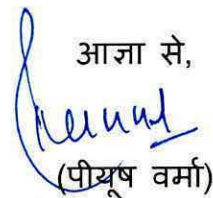 आज्ञा से,
(पीयूष वर्मा)